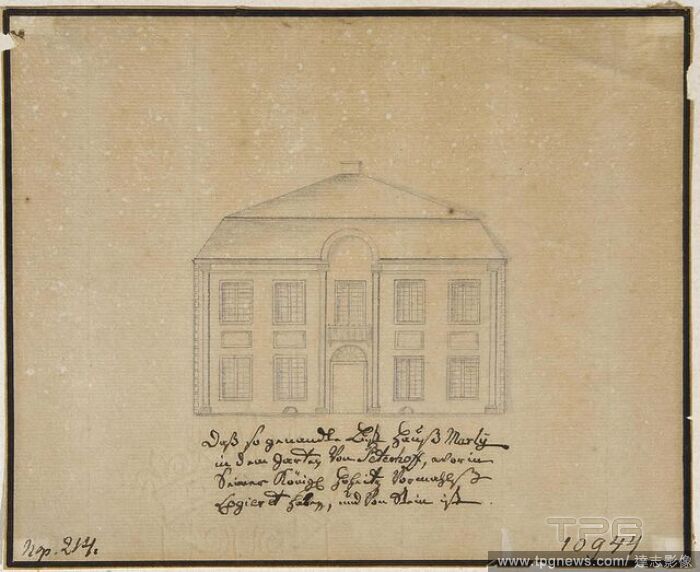 Daß so genandte Lust Hauß Marly
in dem garten Von Peterhoff, worin
Seiner Königl Hoheite Vormahlß
Logieret haben, und Von Stein ist.
Nro. 214.
10944
TPG
www.tpgnews.com / 達志影像